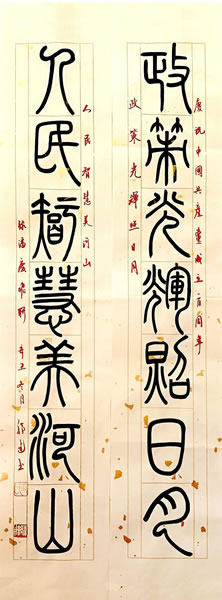 慶祝中國共產黨成立百周年
政策光輝照日月
政策光輝照日月
人民智慧美河山
人民智慧美河山
辛丑冬月